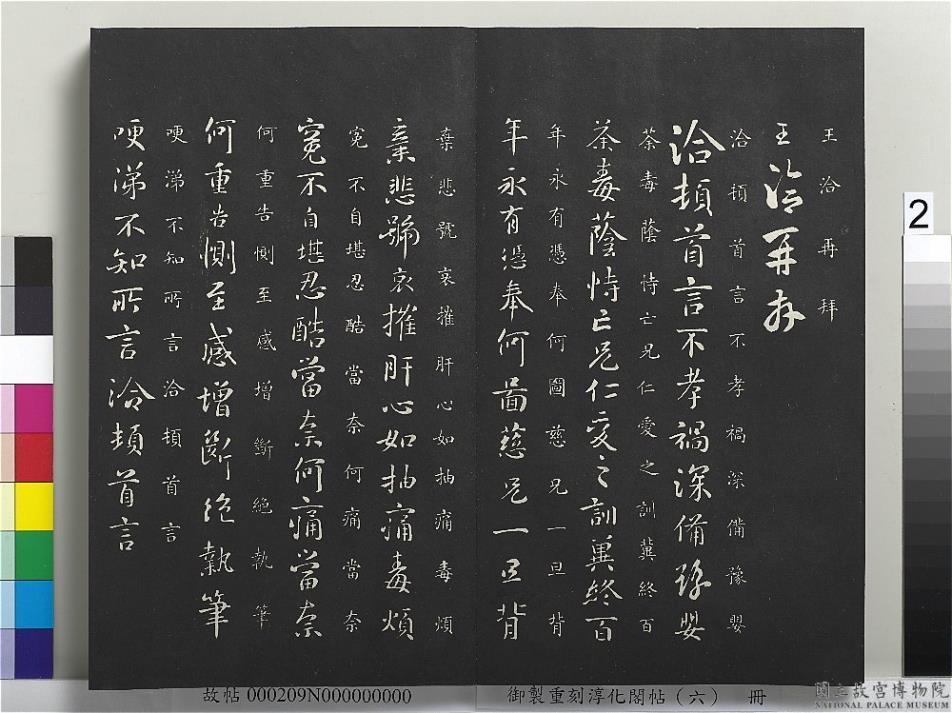 王洽再拜
王洽再拜
洽頓首言不孝禍深備豫嬰
洽頓首言不孝禍深備豫嬰
荼毒蔭恃亡兄仁愛之訓冀終百
荼毒蔭恃亡兄仁愛之訓冀終百
年永有憑奉何圖慈兄一旦背
年永有憑奉何圖慈兄一旦背
棄悲號哀摧肝心如抽痛毒煩
棄悲號哀摧肝心如抽痛毒煩
冤不自堪忍酷當奈何痛當奈
冤不自堪忍酷當奈何痛當奈
何重告惻至感增斷絕執筆
何重告惻至感增斷絕執筆
哽涕不知所言洽頓首言
哽涕不知所言洽頓首言
2
故帖 000209N000000000 御製重刻淳化閣帖（六） 冊
國立故宮博物院
NATIONAL PALACE MUSEUM